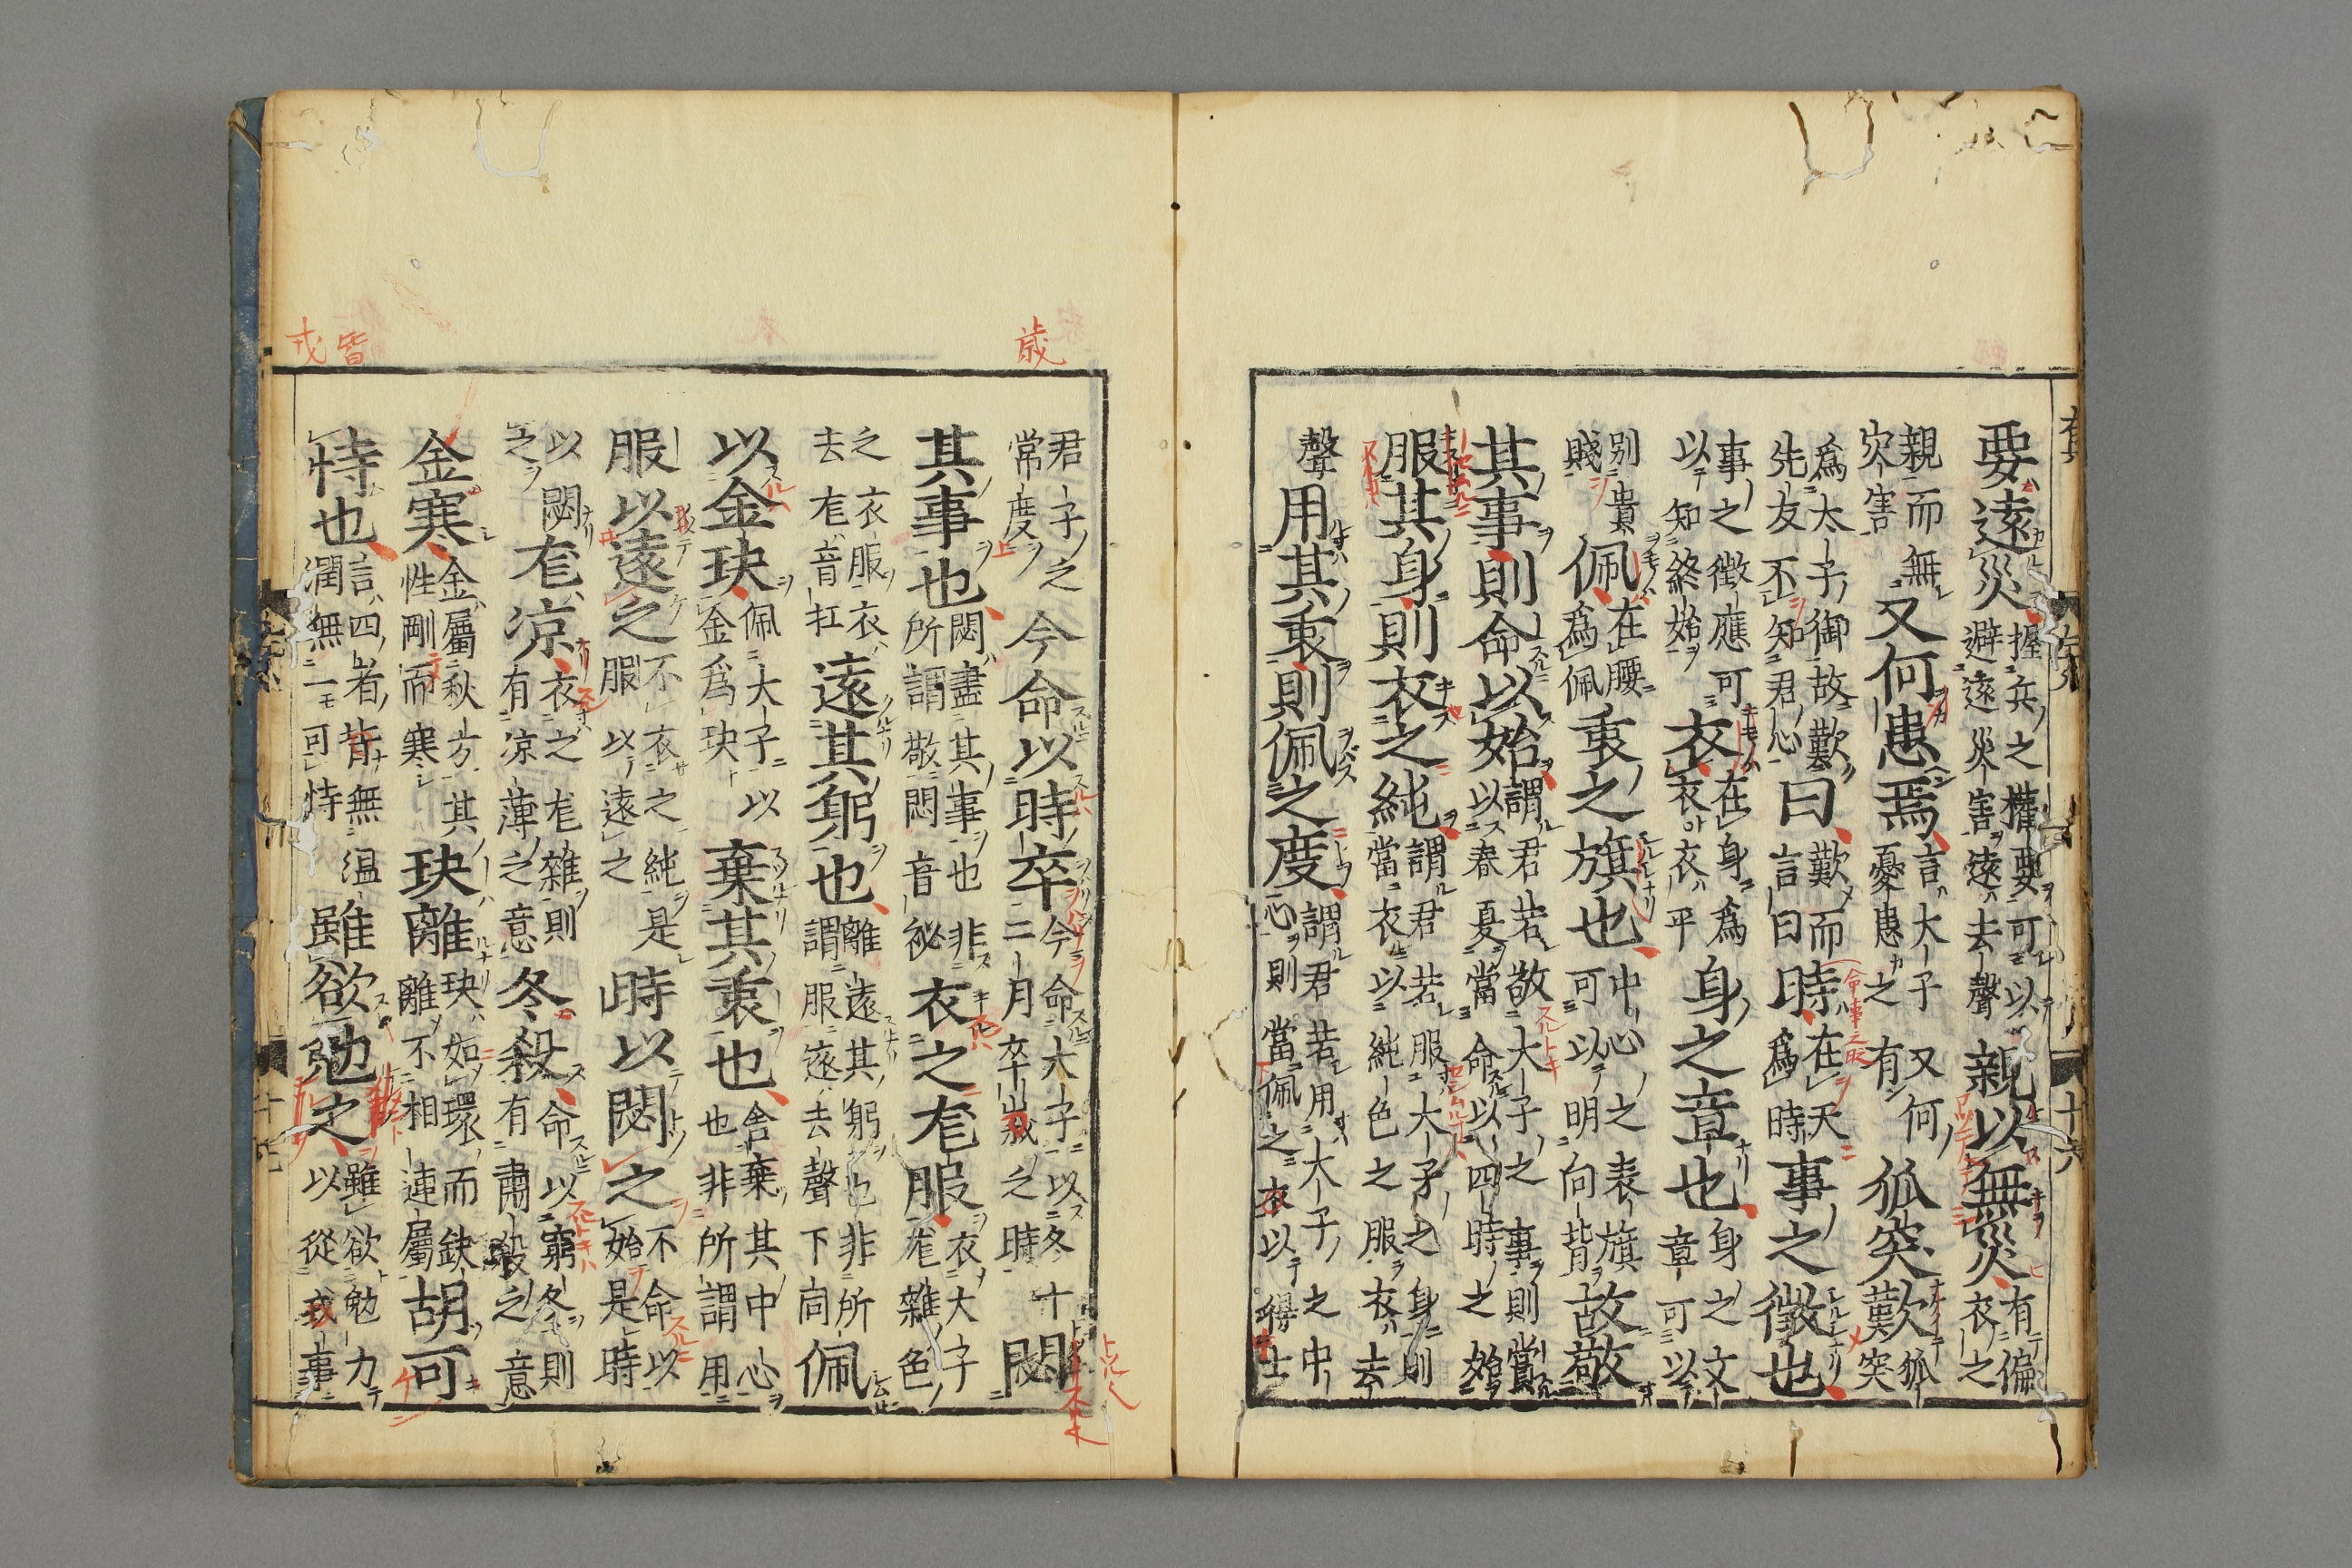 要遠災握兵之權要可以避遠災害遠去聲親以無災有偏衣之
親而無灾害又何患焉言大子又何憂患之有狐突歎狐突
為太子御故歎先友不知君心曰歎而言曰時在天為時事之徵也
事之徵應可以知終始衣在身為衣衣平身之章也身之文章可以
别貴賤佩在腰為佩衷之旗也中心之表旗可以明向背故敬
其事則命以始謂君若敬大子之事則當以春夏當命以四時之始
服其身則衣之純謂君若服大子之身則當衣以純色之服衣去
聲用其衷則佩之度謂君若用大子之中心則當佩之衣以得士
十六
歲
皆
戎
君子之常度今命以時卒今命大子以冬十二月卒歲之時閟
其事也閟盡其事也非所謂敬閟音祕衣之尨服衣大子尨雜色
之衣服衣去尨音扛遠其躬也離遠其躬也非所謂服遂去聲下同佩
以金玦佩大子以金為玦棄其衷也舍棄其中心也非所謂用
服以遠之不衣之純是服以遠之時以閟之不命以始是時
以閟之尨凉衣之尨雜則有凉薄之意冬殺命以窮冬則有肅殺之意
金寒金屬秋方其性剛而寒玦離玦如環而缺離不相連屬胡可
恃也言四者皆無温潤無一可恃雖欲勉之雖欲勉力以從戎事